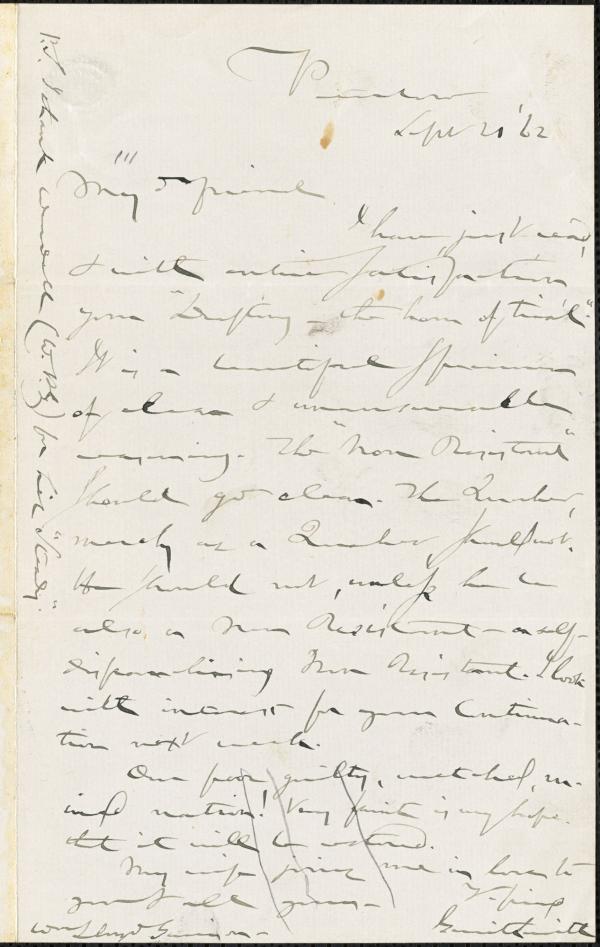 Peterboro
Sept 21 '62
My Dr friend
I have just read,
& with entire satisfaction
your "Drafting – the hour of trial".
It is a beautiful specimen
of clear & unanswerable
reasoning. The "Non Resistant"
should go clear. The Quaker,
merely as a Quaker, should not.
He should not, unless he be
also a Non Resistant – a self-
disfranchising Non Resistant. I look
with interest for your Continua-
tion next week.
Our poor, guilty, wretched, ru-
ined nation! Very faint is my hope
tht it will be restored.
My wife joins me in love to
you & all yours –
Yr friend
Gerrit Smith
Wm Lloyd Garrison –
P.S. I thank Wendell (W.P.G.) for his "Steady".